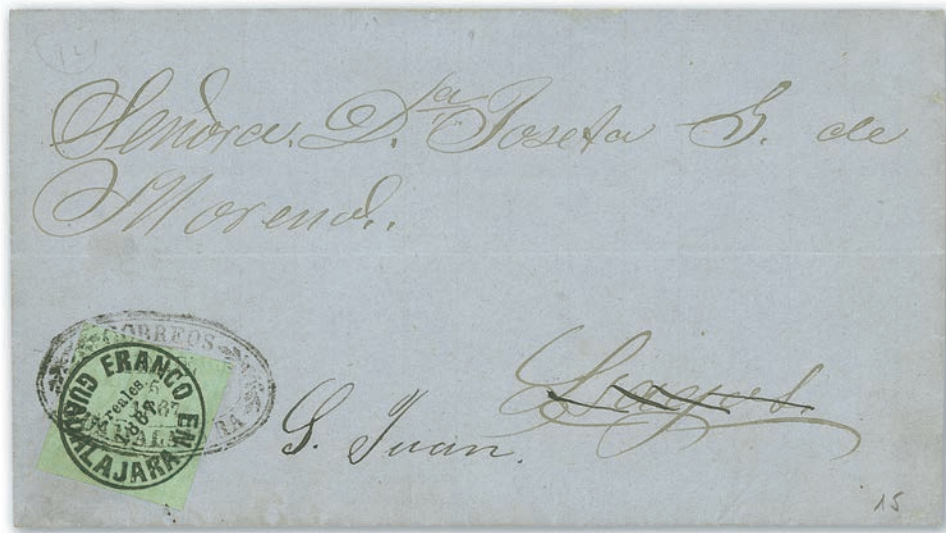 Señora. D.ª Josefa G. de
Moreno.
CORREOS
FRANCO EN
GUADALAJARA
reales
1867
S. Juan.
Lagos.
15